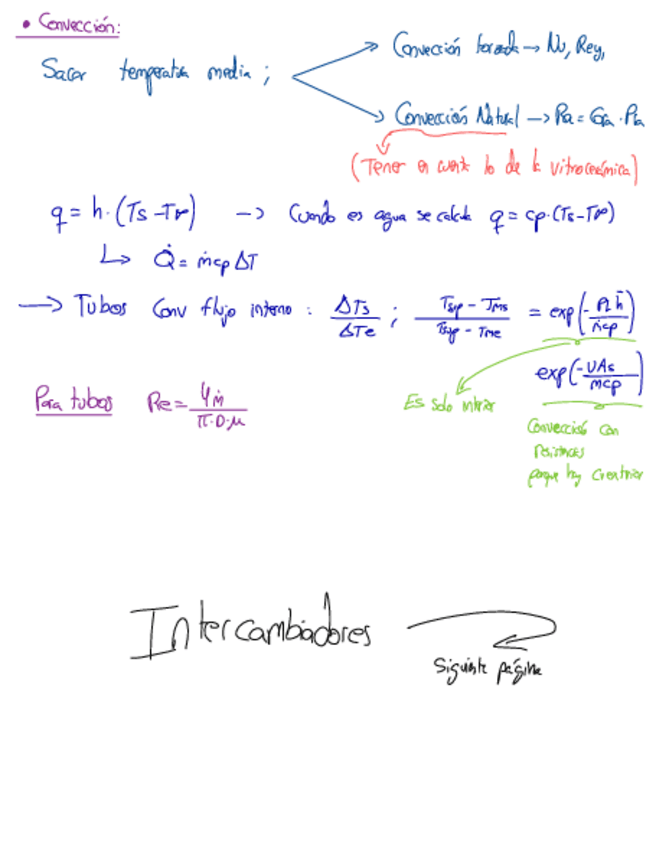 • Convección:
Sacar temperatura media ;
Convección forzada → Nu, Rey,
Convección Natural → Ra = Gra · Pra
(Tener en cuenta lo de la vitrocerámica)
q = h · (Ts - T∞) → Cuando es agua se calcula q = cp · (Ts - T∞)
↳ Q̇ = ṁ cp ΔT
→ Tubos Conv flujo interno : ΔTs / ΔTe ; (Tsup - Tms) / (Tsup - Tme) = exp(- PL h̄ / ṁcp)
exp(- UAs / ṁcp)
Es solo interior
Para tubos Re = 4ṁ / π·D·μ
Convección con
Resistencias
porque hay Cv exterior
Intercambiadores
Siguiente página